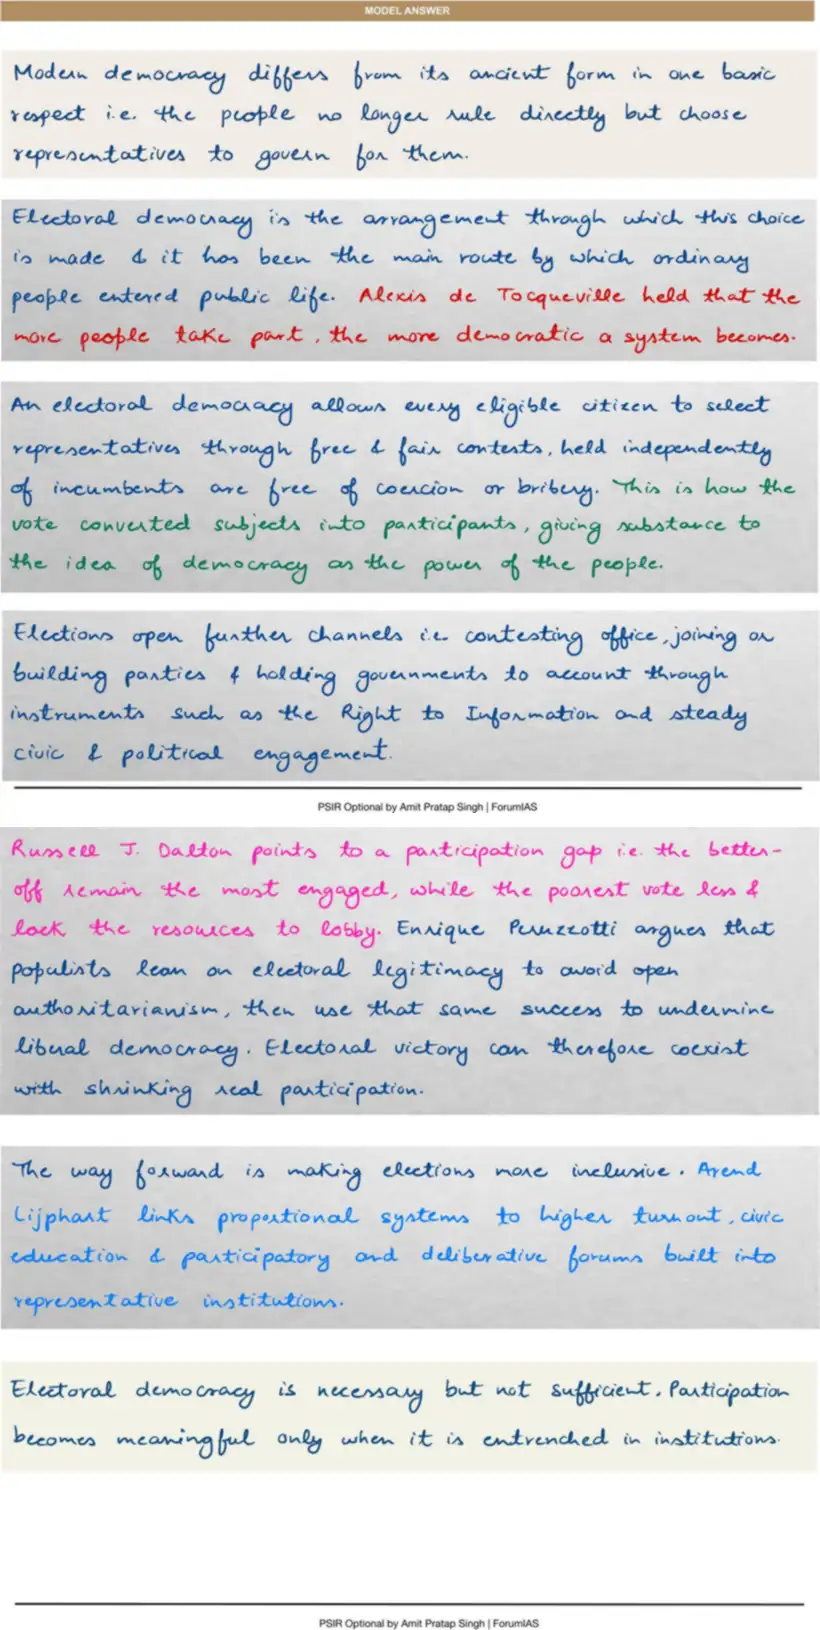 MODEL ANSWER
Modern democracy differs from its ancient form in one basic
respect i.e. the people no longer rule directly but choose
representatives to govern for them.
Electoral democracy is the arrangement through which this choice
is made & it has been the main route by which ordinary
people entered public life. Alexis de Tocqueville held that the
more people take part, the more democratic a system becomes.
An electoral democracy allows every eligible citizen to select
representatives through free & fair contests, held independently
of incumbents are free of coercion or bribery. This is how the
vote converted subjects into participants, giving substance to
the idea of democracy as the power of the people.
Elections open further channels i.e. contesting office, joining or
building parties & holding governments to account through
instruments such as the Right to Information and steady
civic & political engagement.
PSIR Optional by Amit Pratap Singh | ForumIAS
Russell J. Dalton points to a participation gap i.e. the better-
off remain the most engaged, while the poorest vote less &
lack the resources to lobby. Enrique Peruzzotti argues that
populists lean on electoral legitimacy to avoid open
authoritarianism, then use that same success to undermine
liberal democracy. Electoral victory can therefore coexist
with shrinking real participation.
The way forward is making elections more inclusive. Arend
Lijphart links proportional systems to higher turnout, civic
education & participatory and deliberative forums built into
representative institutions.
Electoral democracy is necessary but not sufficient. Participation
becomes meaningful only when it is entrenched in institutions.
PSIR Optional by Amit Pratap Singh | ForumIAS